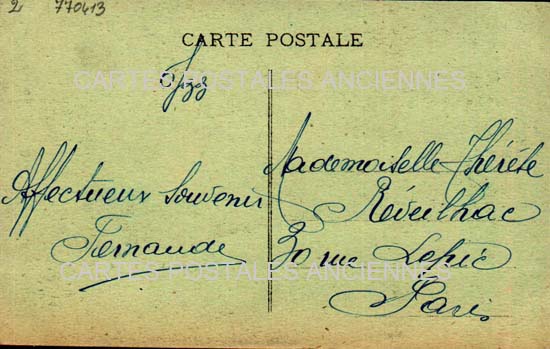 2 770413
CARTE POSTALE
CARTES POSTALES ANCIENNES
Affectueux Souvenir
Fernande
Mademoiselle Thérèse
Réveilhac
30 rue Lepic
Paris
CARTES POSTALES ANCIENNES